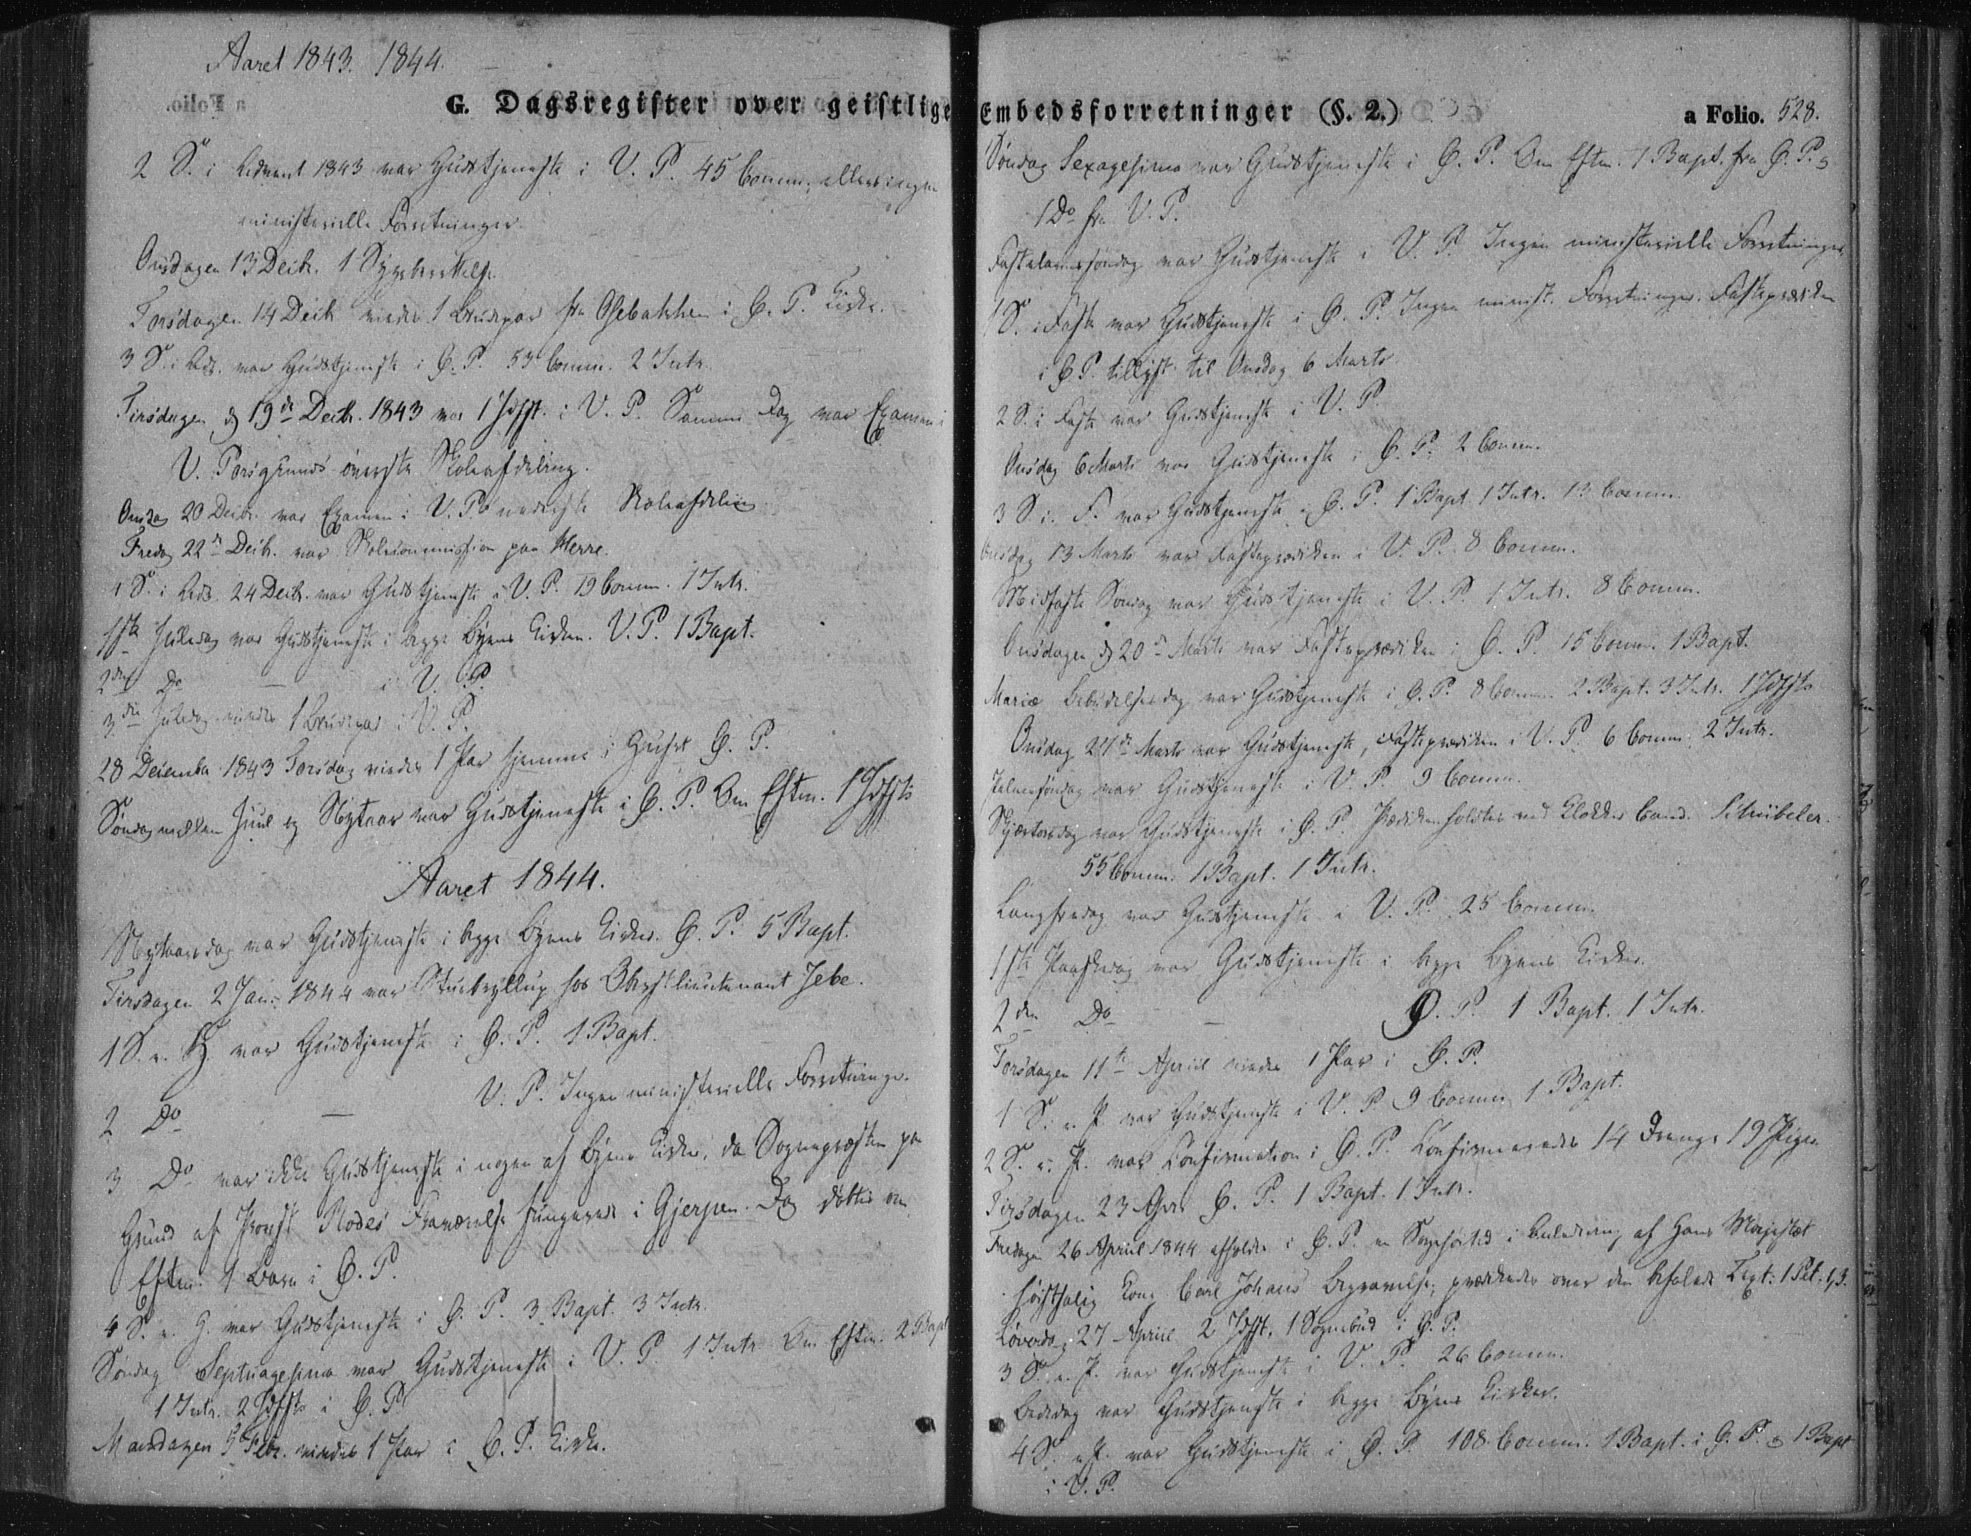 Aaret 1843. 1844.
G. Dagsregister over geistlige Embedsforretninger (§. 2.) a Folio. 528.
2 S. i Advent 1843 var Gudstjeneste i V. P. 45 Comm. ellers ingen
ministerielle Forretninger.
Onsdagen 13 Decbr. 1 Sygeberettelse.
Torsdagen 14 Decbr. viedes 1 Brudepar fra Osebakken i Ø. P. Kirke.
3 S. i Adv. var Gudstjeneste i Ø. P. 53 Comm. 2 Intr.
Tirsdagen d 19de Decbr. 1843 var 1 Jdfst. i V. P. Samme Dag var Examen i
V. Porsgrunds øverste Skoleafdeling.
Onsdag 20 Decbr. var Examen i V. P.s nederste Skoleafdeling
Fredag 22de Decbr. var Skolecommission paa Herre.
4 S. i Adv. 24 Decbr. var Gudstjeneste i V. P. 19 Comm. 1 Intr.
1ste Juledag var Gudstjeneste i begge Byens Kirker. V. P. 1 Bapt.
2den Do — i V. P.
3die Juledag viedes 1 Brudepar i V. P.
28 December 1843 Torsdag viedes 1 Par hjemme i Huset Ø. P.
Søndag mellem Juul og Nytaar var Gudstjeneste i Ø. P. Om Eftm. 1 Jdfste
Aaret 1844.
Nytaarsdag var Gudstjeneste i begge Byens Kirker. Ø. P. 5 Bapt.
Tirsdagen 2 Jan. 1844 var Stuebryllup hos Oberstlieutenant Jebe.
1 S. e. H. 3 K. var Gudstjeneste i Ø. P. 1 Bapt.
2 Do — V. P. Ingen ministerielle Forretninger.
3 Do var ikke Gudstjeneste i nogen af Byens Kirker, da Sognepræsten paa
Grund af Provst Rodes Fraværelse fungerede i Gjerpen. Dog døbtes om
Eftm. 1 Barn i Ø. P.
4 S. e. H. var Gudstjeneste i Ø. P. 3 Bapt. 3 Intr.
Søndag Septuagesima var Gudstjeneste i V. P. 1 Intr. Om Eftm: 2 Bapt
1 Intr. 2 Jdfste i Ø. P.
Mandagen 5 Febr. viedes 1 Par i Ø. P. Kirke.
Søndag Sexagesima var Gudstjeneste i Ø. P. Om Eftm. 1 Bapt. fra Ø. P. &
1 Do fra V. P.
Fastelavnssøndag var Gudstjeneste i V. P. Ingen ministerielle Forretninger
1 S. i Faste var Gudstjeneste i Ø. P. Ingen minist. Forretninger. Fasteprædiken
i Ø. P. tillyst til Onsdag 6 Marts
2 S. i Faste var Gudstjeneste i V. P.
Onsdag 6 Marts var Gudstjeneste i Ø. P. 2 Comm.
3 S. i. F. var Gudstjeneste i Ø. P. 1 Bapt. 1 Intr. 13 Comm.
Onsdag 13 Marts var Fasteprædiken i V. P. 8 Comm.
Midfaste Søndag var Gudstjeneste i V. P. 1 Intr. 8 Comm.
Onsdagen d 20de Marts var Fasteprædiken i Ø. P. 15 Comm. 1 Bapt.
Mariæ Bebudelsesdag var Gudstjeneste i Ø. P. 8 Comm. 2 Bapt. 3 Intr. 1 Jdfste
Onsdag 27de Marts var Gudstjeneste, Fasteprædiken i V. P. 6 Comm. 2 Intr.
Palmesøndag var Gudstjeneste i V. P. 9 Comm.
Skjærtorsdag var Gudstjeneste i Ø. P. Prædiken holdtes ved Klokker Cand. Schübeler.
55 Comm. 1 Bapt. 1 Intr.
Langfredag var Gudstjeneste i V. P. 25 Comm.
1ste Paaskedag var Gudstjeneste i begge Byens Kirker.
2den Do — Ø. P. 1 Bapt. 1 Intr.
Torsdagen 11te April viedes 1 Par i Ø. P.
1 S. e. P. var Gudstjeneste i V. P. 9 Comm. 1 Bapt.
2 S. e. P. var Confirmation i Ø. P. Confirmerede 14 Drenge 19 Piger
Tirsdagen 23 Apr. Ø. P. 1 Bapt. 1 Intr.
Fredagen 26 April 1844 afholdtes i Ø. P. en Sørgehøitid i Anledning af Hans Majestæt
høistsalig Kong Carl Johans Begravelse; prædikedes over den befalede Text: 1 Pet. 1,3.
Løverdag 27 April 2 Jdfst. 1 Sognebud i Ø. P.
3 S. e. P. var Gudstjeneste i V. P. 26 Comm.
Bededag var Gudstjeneste i begge Byens Kirker.
4 S. e. P. var Gudstjeneste i Ø. P. 108 Comm. 1 Bapt. i Ø. P. & 1 Bapt
i V. P.